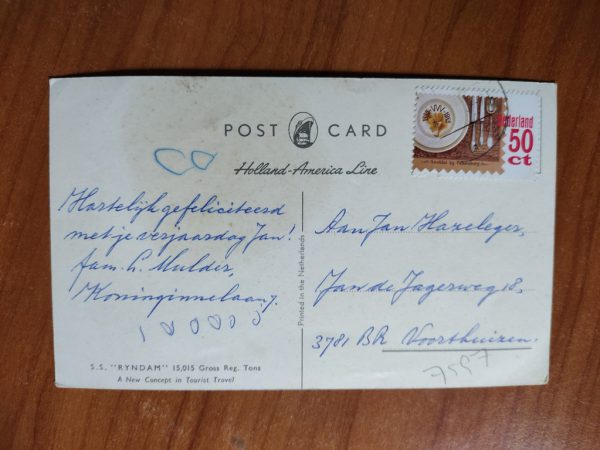 POST CARD
Holland-America Line
Nederland
50
ct
Hartelijk gefeliciteerd
met je verjaardag Jan!
fam. L. Mulder,
Koninginnelaan 7.
Aan Jan Hazeleger,
Jan de Jagerweg 18,
3781 BR Voorthuizen.
7557
Printed in the Netherlands
S.S. "RYNDAM" 15,015 Gross Reg. Tons
A New Concept in Tourist Travel